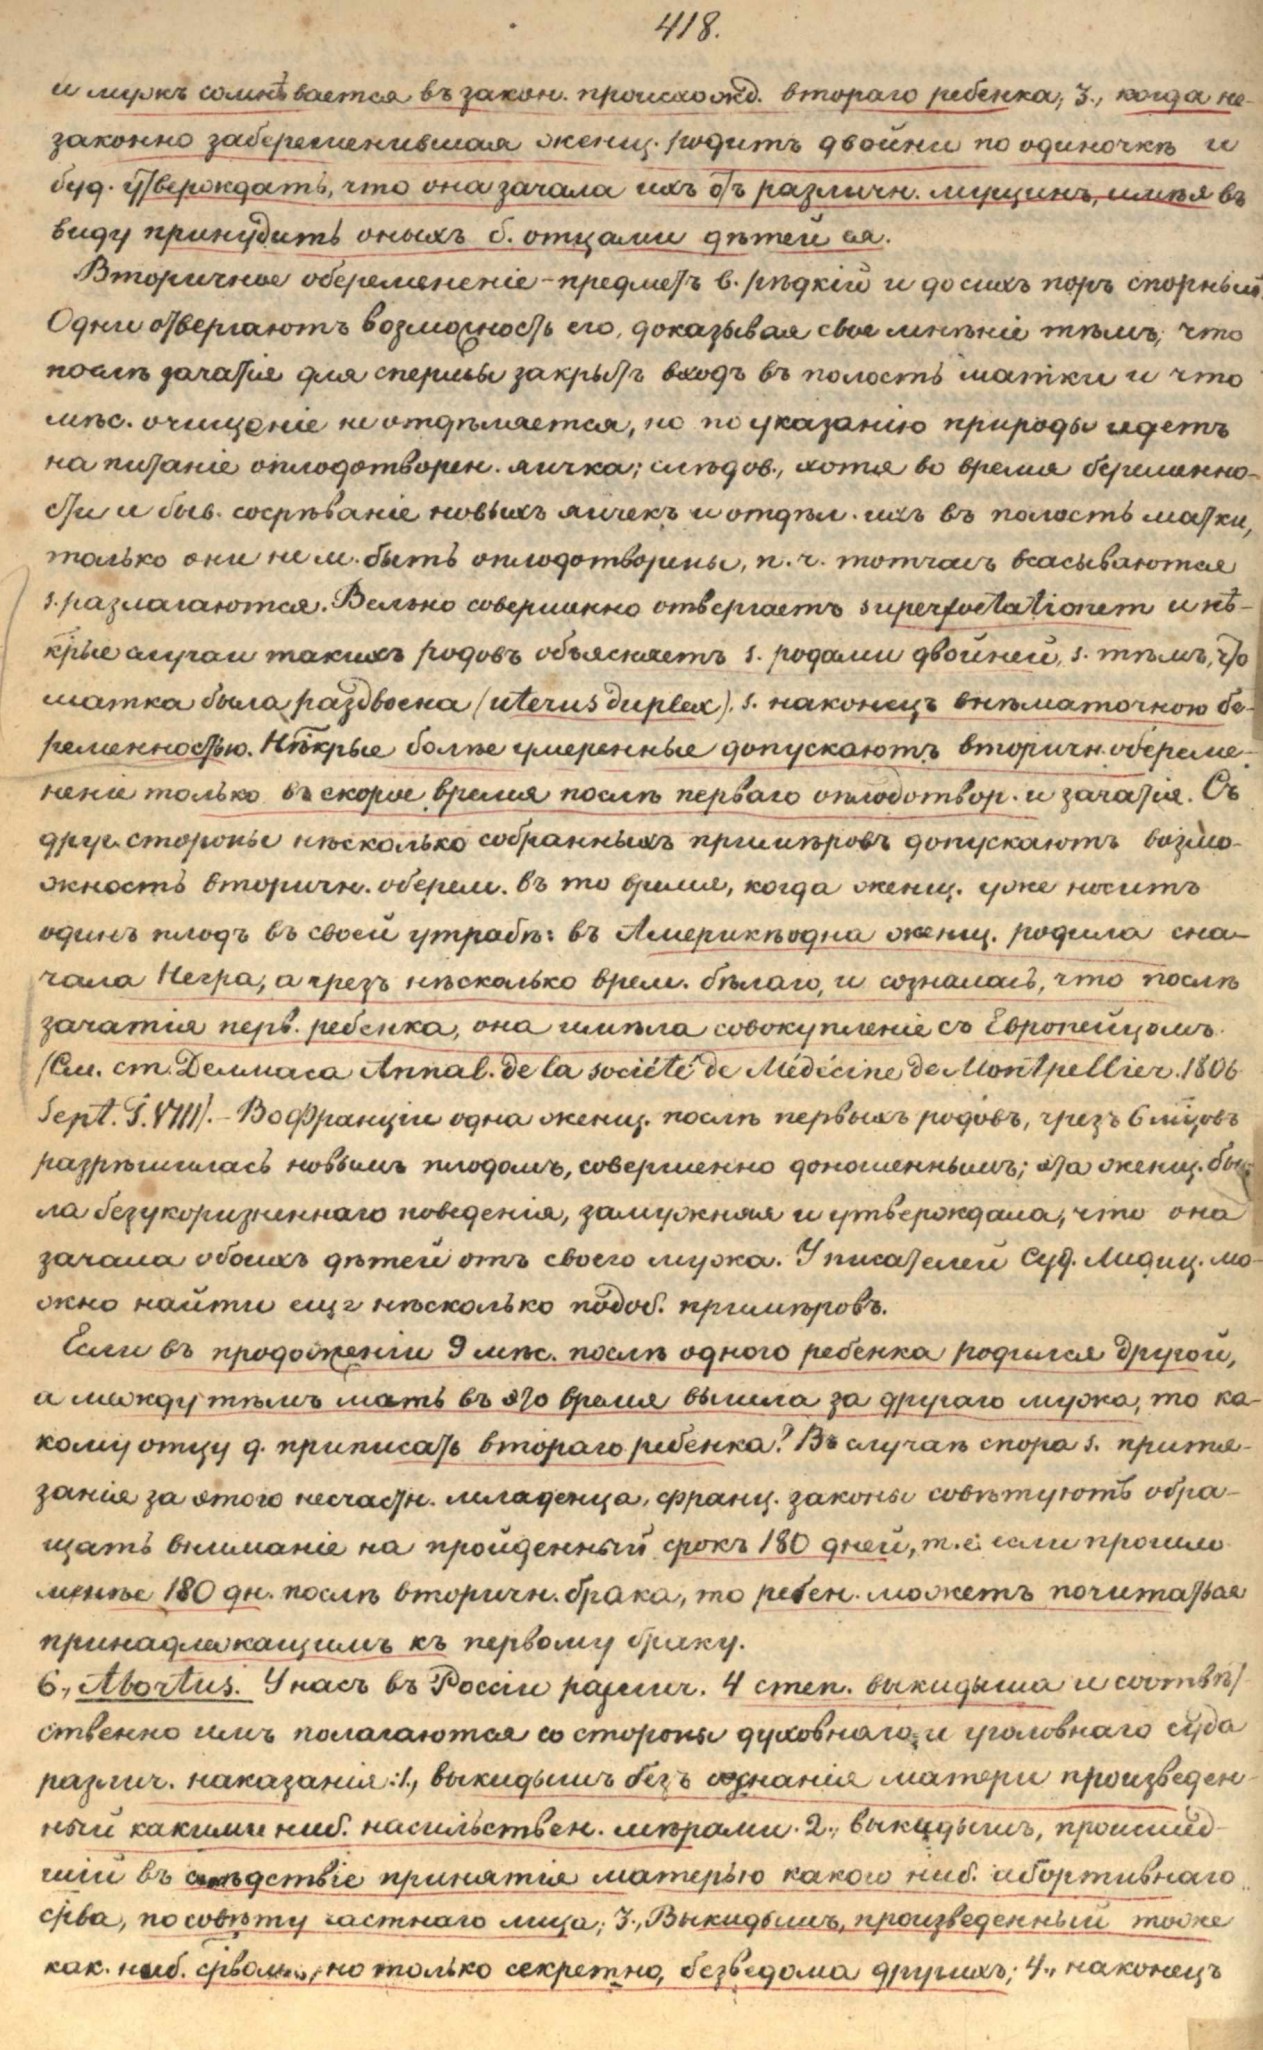 418.
и мужъ сомнѣвается въ закон. происхожд. втораго ребенка, 3., когда не-
законно забеременившая женщ. родитъ двойни по одиночкѣ и
буд. утверждать, что она зачала ихъ отъ различн. мущинъ, имѣя въ
виду принудить оныхъ б. отцами дѣтей ея.
Вторичное обеременеnie - предметъ в. рѣдкій и досихъ поръ спорный.
Одни отвергаютъ возможность его, доказывая свое мнѣніе тѣмъ, что
послѣ зачатія для спермы закрытъ входъ въ полость матки и что
мѣс. очищеніе не отдѣляется, но по указанію природы идетъ
на питаніе оплодотворен. яичка; слѣдов., хотя во время беременно-
сти и быв. созрѣваніе новыхъ яичекъ и отдѣл. ихъ въ полость матки,
только они не м. быть оплодотворены, п. ч. тотчасъ всасываются
s. разлагаются. Вельпо совершенно отвергаетъ superfoetationem и нѣ-
крые случаи такихъ родовъ объясняетъ s. родами двойней, s. тѣмъ, что
матка была раздвоена (uterus duplex). s. наконецъ внѣматочною бе-
ременностью. Нѣкрые болѣе умеренные допускаютъ вторичн. обереме-
неніе только въ скорое время послѣ перваго оплодотвор. и зачатія. Съ
друг. стороны нѣсколько собранныхъ примѣровъ допускаютъ возмо-
жность вторичн. оберем. въ то время, когда женщ. уже носитъ
одинъ плодъ въ своей утрабѣ: въ Америкѣ одна женщ. родила сна-
чала Негра, а чрезъ нѣсколько врем. бѣлаго, и созналась, что послѣ
зачатія перв. ребенка, она имѣла совокупленіе съ Европейцомъ.
(См. ст. Делмаса Annal. de la société de Médicine de Montpellier. 1806
Sept. T. VIII). - Во Франціи одна женщ. послѣ первыхъ родовъ, чрезъ 6 мцовъ
разрѣшилась новымъ плодомъ, совершенно доношеннымъ; эта женщ. бы-
ла безукоризненнаго поведенія, замужняя и утверждала, что она
зачала обоихъ дѣтей отъ своего мужа. У писателей Суд. Медиц. мо-
жно найти еще нѣсколько подоб. примѣровъ.
Если въ продолженіи 9 мѣс. послѣ одного ребенка родился другой,
а между тѣмъ мать въ это время вышла за другаго мужа, то ка-
кому отцу д. приписать втораго ребенка? Въ случаѣ спора s. притя-
занія за этого несчастн. младенца, франц. законы совѣтуютъ обра-
щать вниманіе на пройденный срокъ 180 дней, т. е. если прошло
менѣе 180 дн. послѣ вторичн. брака, то ребен. можетъ почитаться
принадлежащимъ къ первому браку.
6., Abortus. У насъ въ Россіи различ. 4 степ. выкидыша и соотвѣт-
ственно имъ полагаются со стороны духовнаго и уголовнаго суда
различ. наказанія: 1., выкидышъ безъ сознанія матери произведен-
ный какими ниб. насильствен. мѣрами. 2., выкидышъ, происшед-
шій въ слѣдствіе принятія матерью какого ниб. абортивнаго
срва, по совѣту частнаго лица; 3., Выкидышъ, произведенный тоже
как. ниб. срвомъ, но только секретно, безведома другихъ; 4., наконецъ